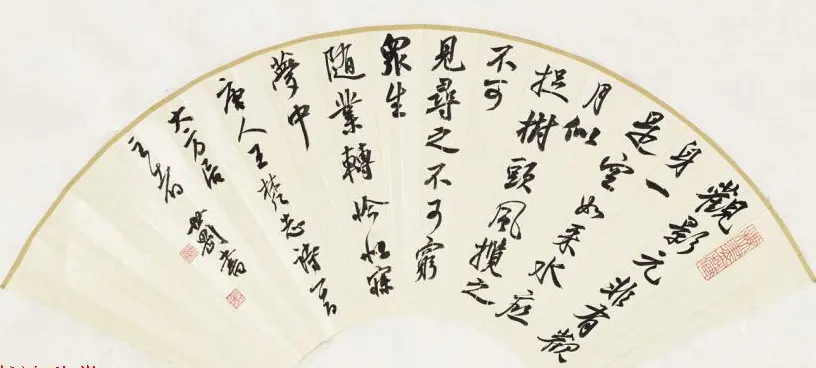 觀影元非有觀
身一
是空如采水底
月似
捉樹頭風攬之
不可
見尋之不可窮
眾生
隨業轉恰似寐
夢中
唐人王梵志詩
大方